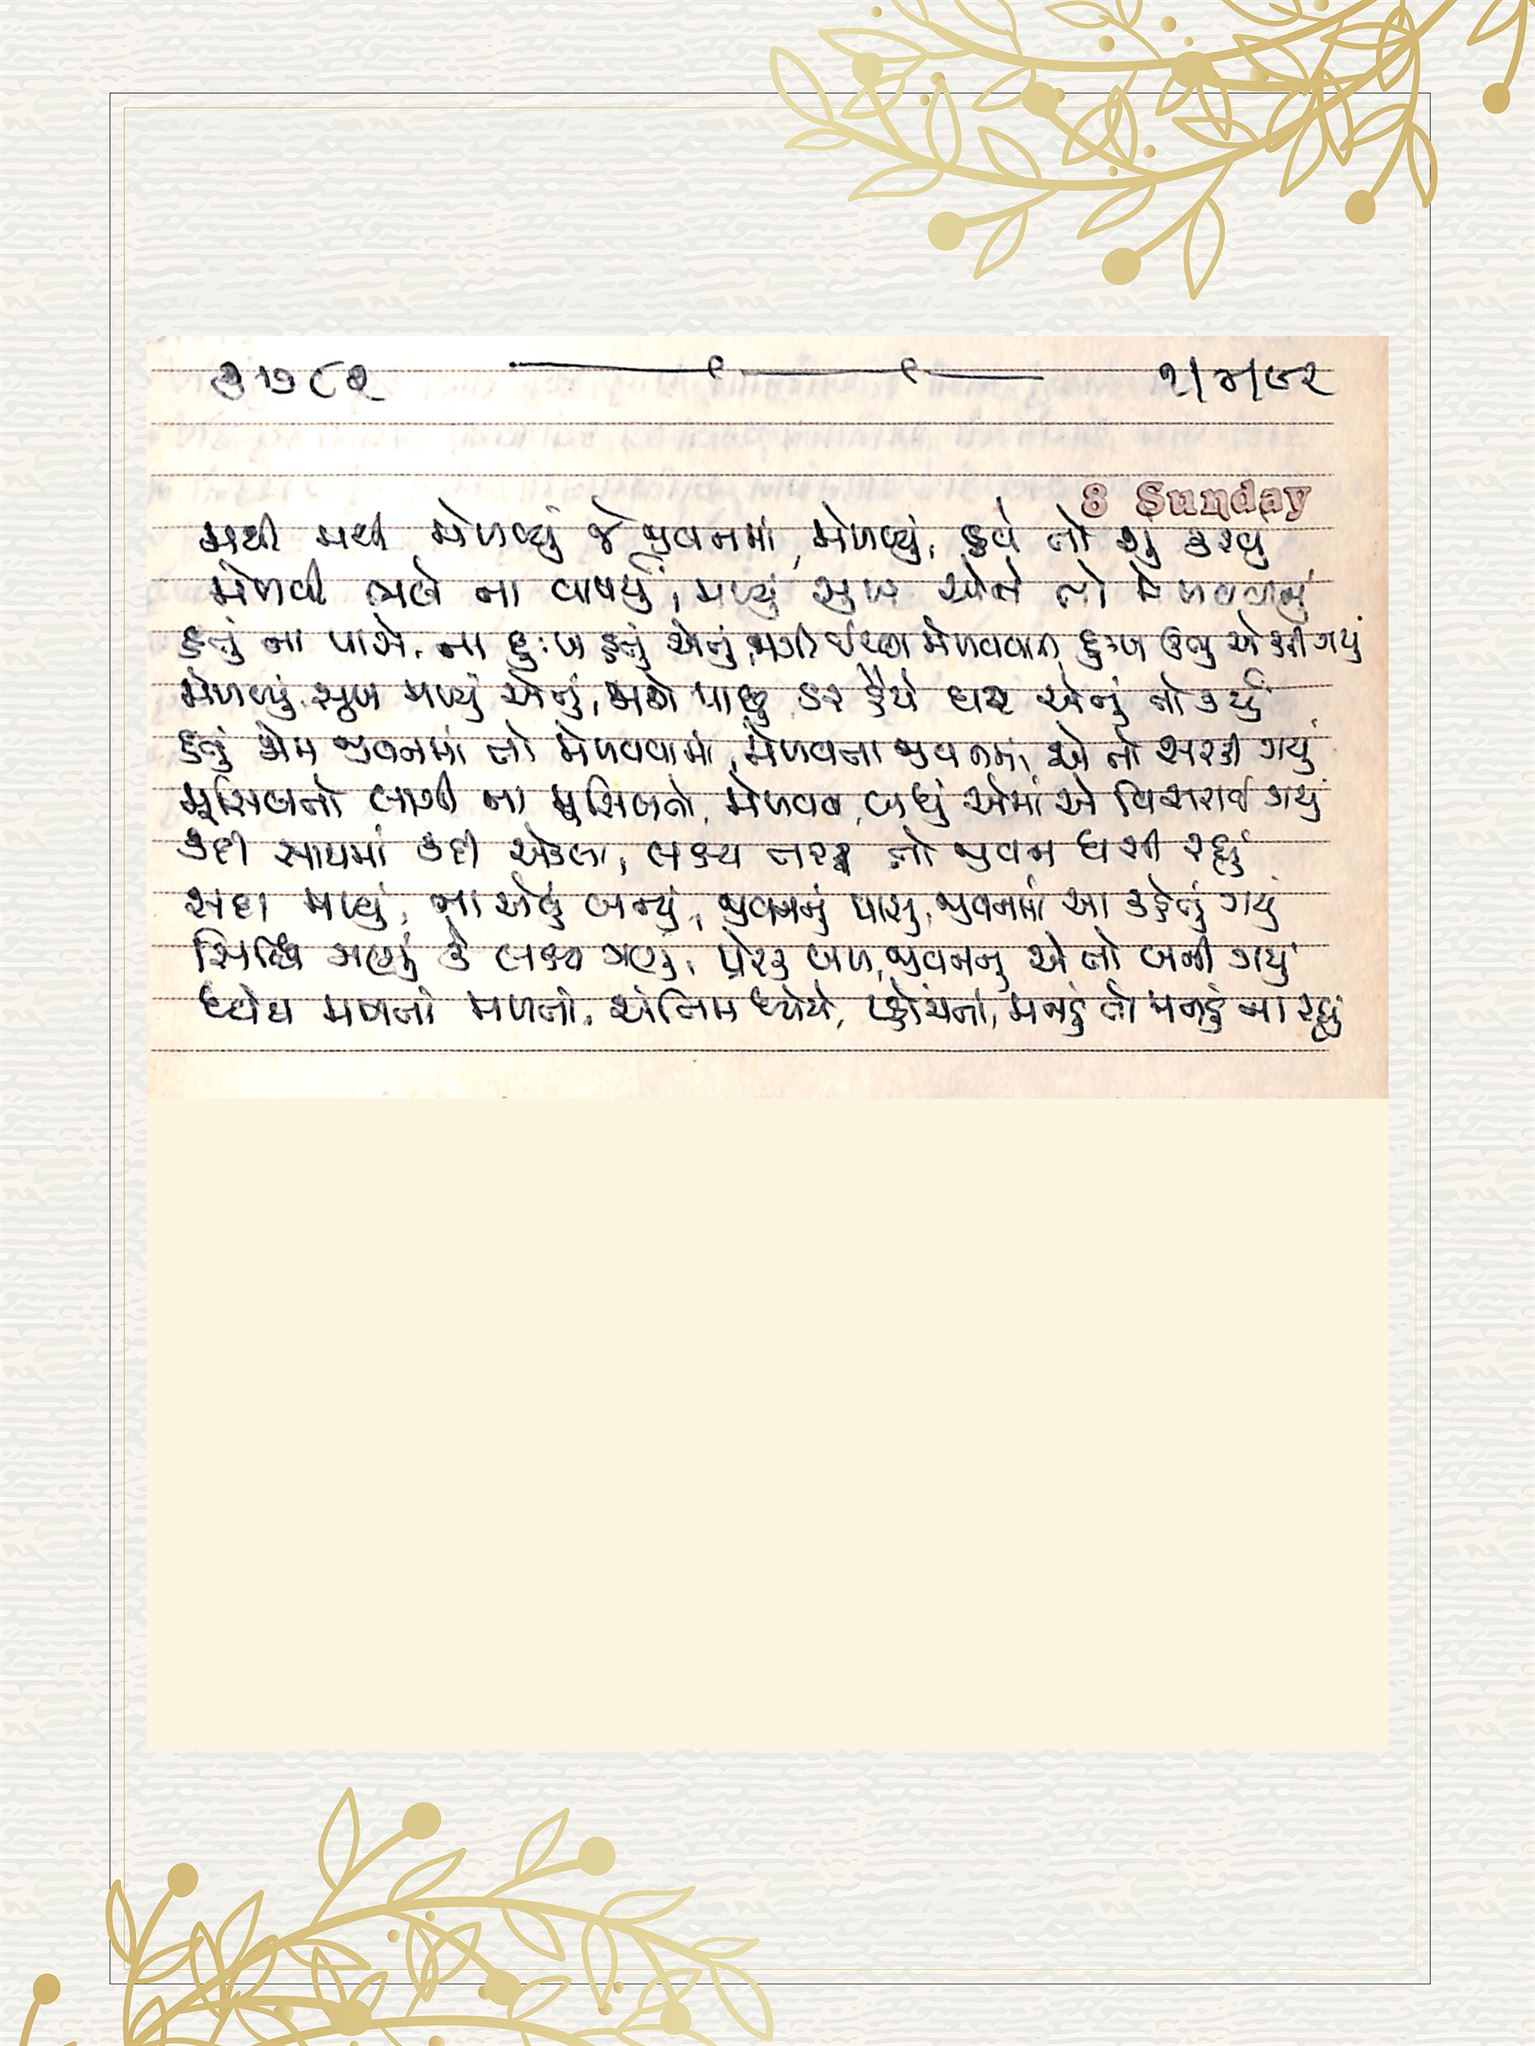 ૩૭૮૨ ૧/૪/૯૨
8 Sunday
મથી મથી મેળવ્યું જે જીવનમાં, મેળવ્યું, હવે તો શું કરવું
મેળવી ભલે ના વાપર્યું, મળ્યું સુખ એને તો મેળવવાનું
હતું ના પાસે, ના દુઃખ હતું એનું, જાગી ઈચ્છા મેળવવાની, દુઃખ ઊભું એ કરી ગયું
મેળવ્યું, સુખ મળ્યું એનું, જાશે પાછું ડર હૈયે ઘર એનું તો કર્યું
હતું જોમ જીવનમાં તો મેળવવામાં, મેળવતા જીવનમાં, એ તો સરકી ગયું
મુસિબતો લાગી ના મુસિબતો, મેળવવા, બધું એમાં એ વિસરાઈ ગયું
કદી સાથમાં કદી એકલા, લક્ષ્ય તરફ તો જીવન ધસી રહ્યું
સદા મળ્યું, ના એવું બન્યું, જીવનનું પાસુ, જીવનમાં આ કહેતું ગયું
સિદ્ધિ ગણું કે લક્ષ્ય ગણું, પ્રેરક બળ, જીવનનું એ તો બની ગયું
ધ્યેય મળતાં મળતાં, અંતિમ ધ્યેયે, પ્હોંચતાં, મનડું તો મનડું ના રહ્યું